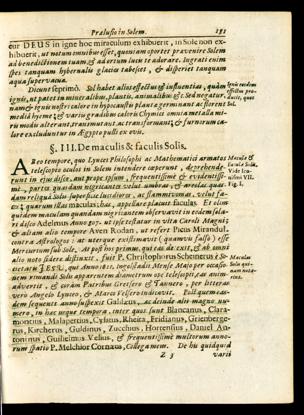 Prælusio in Solem. 151
cur DEUS in igne hoc miraculum exhibuerit, in Sole non ex-
hibuerit, ut nutum omnibus esset, quoniam oportet prævenire Solem
ad benedictionem tuam, & ad ortum lucis te adorare. Ingrati enim
spes tanquam hybernalis glacies tabescet, & disperiet tanquam
aqua supervacua.
Dicunt septimò. Sol habet alios effectus & influentias, quàm
ignis, ut patet in mineralibus, plantis, animalibus &c. Sed negatur,
nam & ignis nostri calore in hypocausto plantæ germinant ac florent
mediâ hyeme; & variis gradibus caloris Chymici omnia metalla mi-
rum in modum alterant, transmutant ac transformant; & furnorum ca-
lore excluduntur in Ægypto pulli ex ovis.
Ignis eosdem
effectus pro-
ducit, quos
Sol.
§. III. De maculis & faculis Solis.
AB eo tempore, quo Lyncei Philosophi ac Mathematici armatos
telescopio oculos in Solem intendere cœperunt, deprehende-
runt in ejus disco, aut prope ipsum, frequentissimè & evidentissi-
mè, partes quasdam nigricantes velut umbras, & areolas quas-
dam reliquâ Solis superficie lucidiores, ac flammivomas, velut fa-
ces; quarum illas maculas; has, appellare placuit faculas. Et olim
quidem maculam quandam nigricantem observavit in eodem sola-
ri disco Adelmus Anno 807. ut ipse testatur in vita Caroli Magni;
& aliam alio tempore Aven Rodan, ut refert Picus Mirandul.
contra Astrologos: at uterque existimavit (quamvis falsò) esse
Mercurium sub Sole. At post hos primus, qui tale de exit, & ab omni
alio noto sidere distinxit, fuit P. Christophorus Scheinerus è So-
cietate JESU, qui Anno 1611. Ingolstadii Mense Majo per occasio-
nem rimandi Solis apparentem diametrum ope telescopii, eas animo
advertit, & coràm Patribus Gretsero & Tannero, per litteras
verò Angelo Lynceo, & Marco Velsero indicavit. Post quem ean-
dem sequenti anno suspexit Galilæus, ac deinde alii magno nu-
mero, in hac usque tempora, inter quos sunt Blancanus, Clara-
montius, Malapertius, Cysatus, Rheita, Fridianus, Grienberge-
rus, Kircherus, Guldinus, Zucchius, Hortensius, Daniel An-
tonius, Guilielmus Velius, & frequentissimè multorum anno-
rum spatio P. Melchior Cornæus, Collega meus. De his quidquid
Maculæ &
faculæ Solis.
Vide Ico-
nismum VII.
Fig. I.
Maculas
Solis qui-
nam nota-
rint.
Z 3 varii